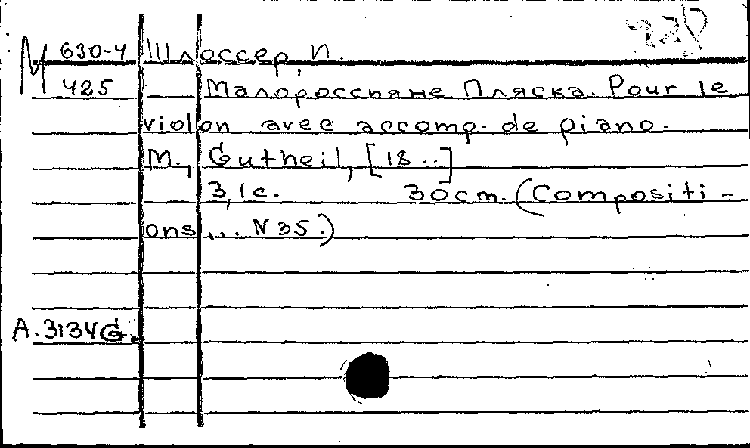 М 630-4 Шлоссер, П.
425 Малороссияне Пляска. Pour le
violon avec accomp. de piano.
М., Gutheil, [18..]
3,1 с. 30 cm. (Compositi-
ons... N 35.)
А. 3134 G.